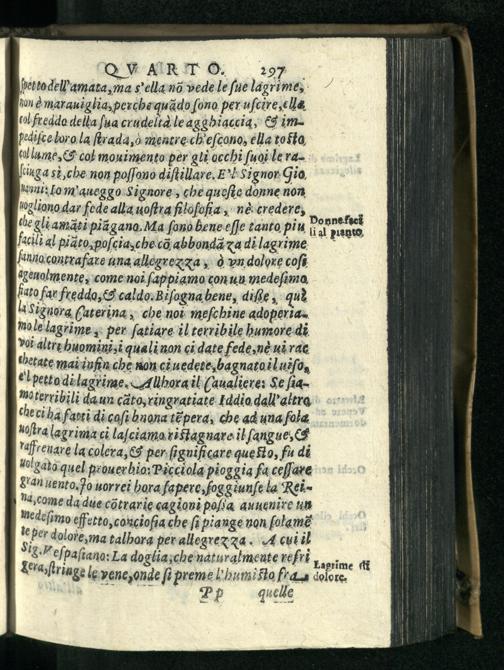 QVARTO. 297
spetto dell'amata, ma s'ella nō vede le sue lagrime,
non è marauiglia, perche quãdo sono per uscire, ella
col freddo della sua crudeltà le agghiaccia, & im-
pedisce loro la strada, ò mentre ch'escono, ella tosto
col lume, & col mouimento per gli occhi suoi le ra-
sciuga sì, che non possono distillare. E'l Signor Gio
uanni: Io m'aueggo Signore, che queste donne non
uogliono dar fede alla uostra filosofia, nè credere,
che gli amãti piãgano. Ma sono bene esse tanto piu
facili al piãto, poscia, che cō abbondãza di lagrime
sanno contrafare una allegrezza, ò vn dolore così
ageuolmente, come noi sappiamo con un medesimo
fiato far freddo, & caldo. Bisogna bene, disse, quì
la Signora Caterina, che noi meschine adoperia-
mo le lagrime, per satiare il terribile humore di
voi altri huomini, i quali non ci date fede, nè ui rac
chetate mai infin che non ci uedete, bagnato il uiso,
e'l petto di lagrime. Allhora il Caualiere: Se sia-
mo terribili da un cãto, ringratiate Iddio dall'altro,
che ci hà fatti di così buona tẽpera, che ad una sola
uostra lagrima ci lasciamo ristagnare il sangue, &
raffrenare la colera, & per significare questo, fu di
uolgato quel prouerbio: Picciola pioggia fa cessare
gran uento. Io uorrei hora sapere, soggiunse la Rei-
na, come da due cōtrarie cagioni possa auuenire un
medesimo effetto, conciosia che si piange non solamẽ
te per dolore, ma talhora per allegrezza. A cui il
Sig. Vespasiano: La doglia, che naturalmente refri
gera, stringe le vene, onde si preme l'humisto fra
Pp quelle
Donne faci
li al pianto.
Lagrime di
dolore.